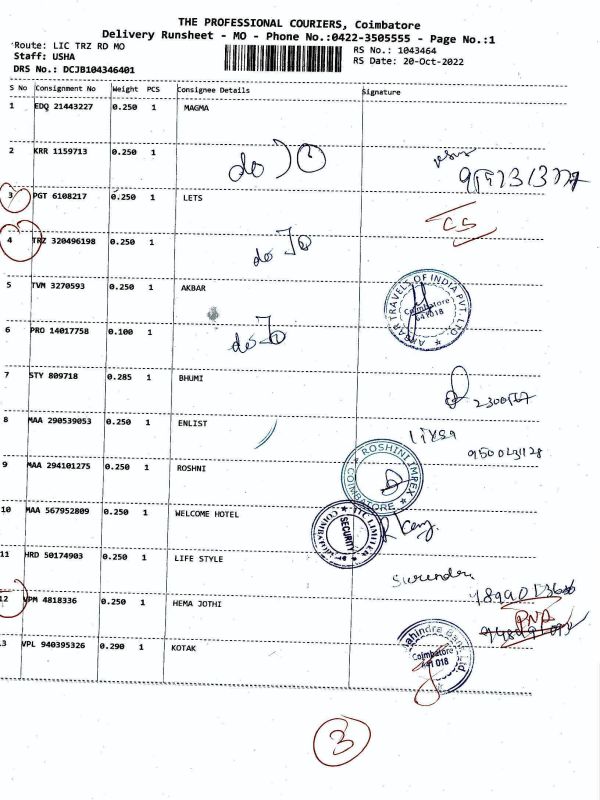 THE PROFESSIONAL COURIERS, Coimbatore
Delivery Runsheet - MO - Phone No.:0422-3505555 - Page No.:1
Route: LIC TRZ RD MO
RS No.: 1043464
Staff: USHA
RS Date: 20-Oct-2022
DRS No.: DCJB104346401
S No Consignment No Weight PCS Consignee Details Signature
1 EDQ 21443227 0.250 1 MAGMA
2 KRR 1159713 0.250 1 do
3 PGT 6108217 0.250 1 LETS CS
4 TRZ 320496198 0.250 1 do
5 TVM 3270593 0.250 1 AKBAR
AKBAR TRAVELS OF INDIA PVT. LTD.
Coimbatore
641018
6 PRO 14017758 0.100 1 do
7 STY 809718 0.285 1 BHUMI
8 MAA 290539053 0.250 1 ENLIST
9 MAA 294101275 0.250 1 ROSHNI
ROSHINI IMPEX
COIMBATORE
10 MAA 567952809 0.250 1 WELCOME HOTEL
ITC LIMITED
SECURITY
11 HRD 50174903 0.250 1 LIFE STYLE
Surendar
12 VPM 4818336 0.250 1 HEMA JOTHI
13 VPL 940395326 0.290 1 KOTAK
Mahindra Bank Ltd
Coimbatore
641 018
3